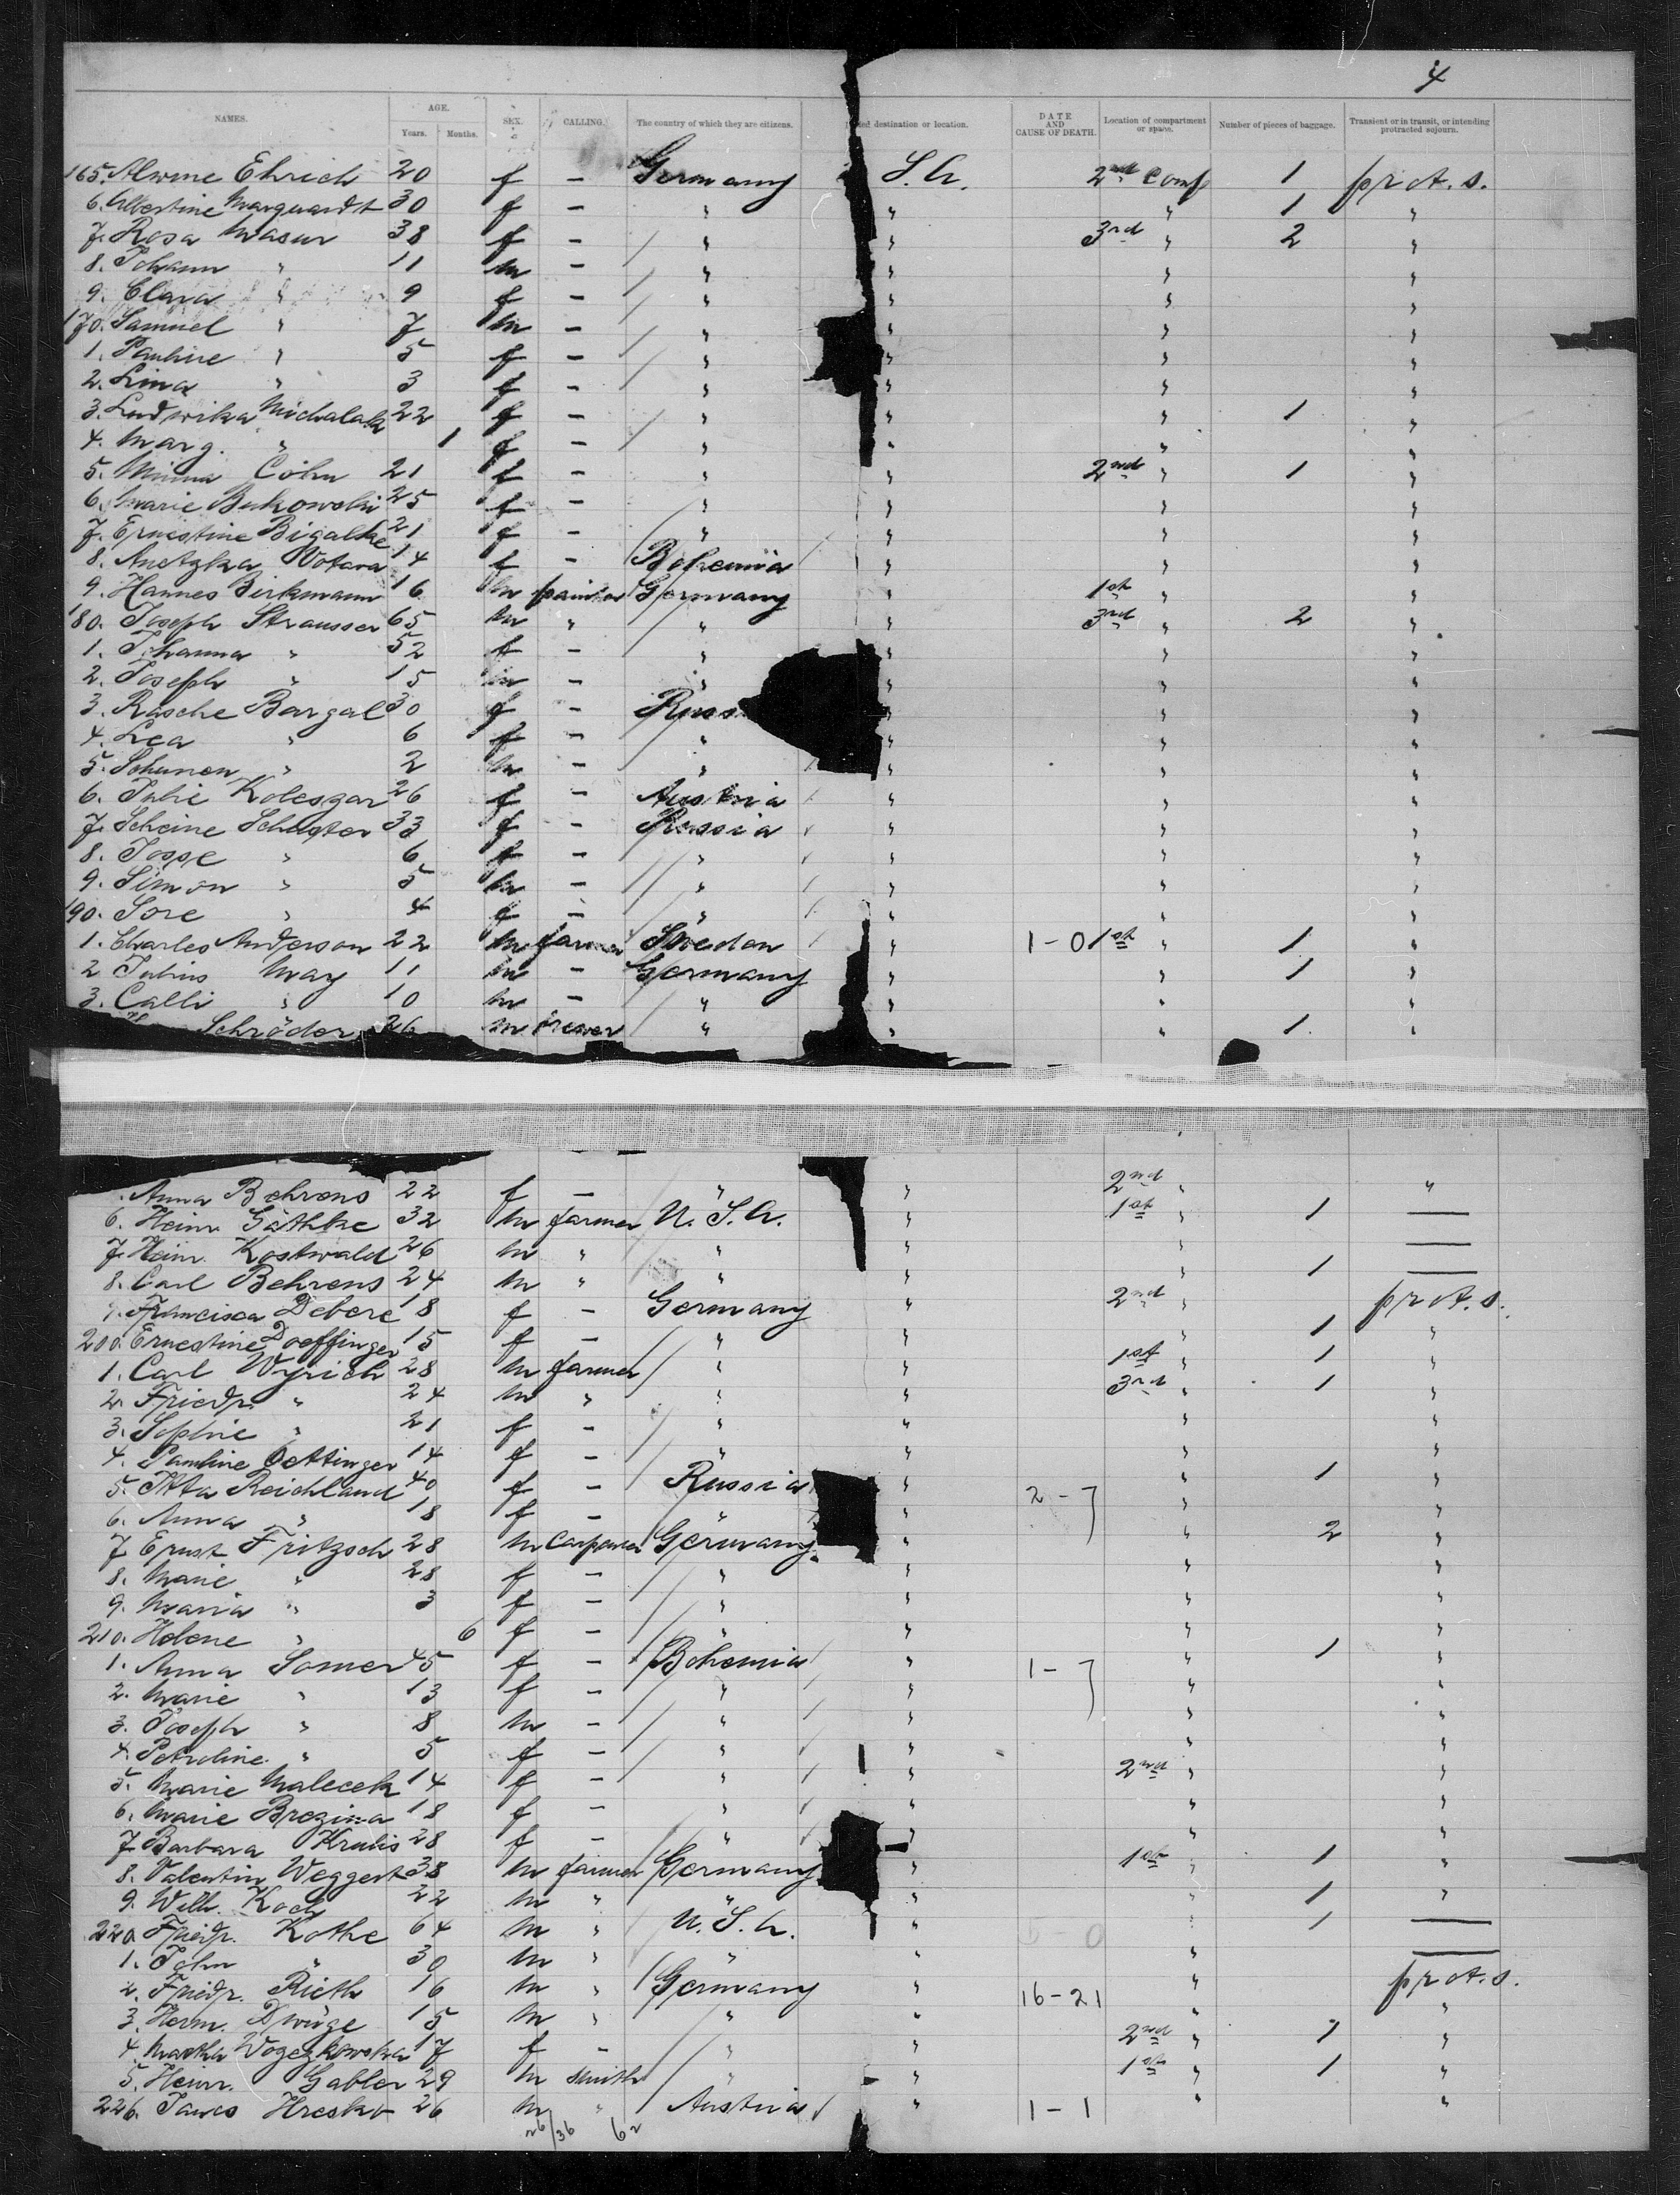 4
NAMES. AGE. Years. Months. SEX. CALLING. The country of which they are citizens. destination or location. DATE AND CAUSE OF DEATH. Location of compartment or space. Number of pieces of baggage. Transient or in transit, or intending protracted sojourn.
165. Alwine Ehrich 20 f - Germany S. A. 2nd Comp 1 prot. s.
6. Albertine Marquardt 30 f - " " " 1 "
7. Rosa Masur 38 f - " " 3rd " 2 "
8. Johann " 11 m - " " " "
9. Clara " 9 f - " " " "
170. Samuel " 7 m - " " " "
1. Pauline " 5 f - " " " "
2. Lina " 3 f - " " " "
3. Ludwika Michalak 22 f - " " " 1 "
4. Marg. " 1 f - " " " "
5. Minna Cohn 21 f - " " 2nd " 1 "
6. Marie Bukowski 25 f - " " " "
7. Ernestine Bigalke 21 f - " " " "
8. Anetzka Votava 14 f - Bohemia " " "
9. Hannes Birkmann 16 m painter Germany " 1st " "
180. Joseph Strausser 65 m " " " 3rd " 2 "
1. Johanna " 52 f - " " " "
2. Joseph " 15 m - " " " "
3. Rasche Bargal 30 f - Russ " " "
4. Lea " 6 f - " " " "
5. Schumen " 2 m - " " " "
6. Julie Koleszar 26 f - Austria " " "
7. Scheine Schuster 33 f - Russia " " "
8. Josse " 6 f - " " " "
9. Simon " 5 m - " " " "
190. Sore " 4 f - " " " "
1. Charles Anderson 22 m farmer Sweden " 1-0 1st " 1 "
2 Julius May 11 m - Germany " " 1 "
3. Calli " 10 m - " " " "
Schröder 26 m brewer " " " 1 "
Anna Behrens 22 f - " " 2nd " "
6. Heinr. Gäthke 32 m farmer U. S. A. " 1st " 1 —
7. Heinr. Kostwald 26 m " " " " —
8. Carl Behrens 24 m " " " " 1 —
9. Francisca Debere 18 f - Germany " 2nd " prot. s.
200. Ernestine Doeffinger 15 f - " " " 1 "
1. Carl Wyrich 28 m farmer " " 1st " 1 "
2. Friedr. " 24 m " " " 3rd " 1 "
3. Sophie " 21 f - " " " "
4. Pauline Oettinger 14 f - " " " "
5. Itta Reichland 40 f - Russia " 2- " 1 "
6. Anna " 18 f - " " " "
7 Ernst Fritzsch 28 m Carpenter Germany " " 2 "
8. Marie " 28 f - " " " "
9. Maria " 3 f - " " " "
210. Helene " 6 f - " " " "
1. Anna Somer 45 f - Bohemia " 1- " 1 "
2. Marie " 13 f - " " " "
3. Joseph " 8 m - " " " "
4. Petroline " 5 f - " " " "
5. Marie Malecek 14 f - " " 2nd " "
6. Marie Brezina 18 f - " " " "
7 Barbara Krulis 28 f - " " " "
8. Valentin Weggert 38 m farmer Germany " 1st " 1 "
9. Wilh. Koch 22 m " " " " 1 "
220. Friedr. Kothe 64 m " U. S. A. " " 1 —
1. John " 30 m " " " " —
2. Friedr. Rieth 16 m " Germany " 16-21 " prot. s.
3. Herm. Dwüge 15 m " " " " "
4. Martha Wozezkowska 17 f - " " 2nd " 1 "
5. Heinr. Gabler 29 m smith " " 1st " 1 "
226. Janos Hresko 26 m " Austria " 1-1 " "
26/36 62